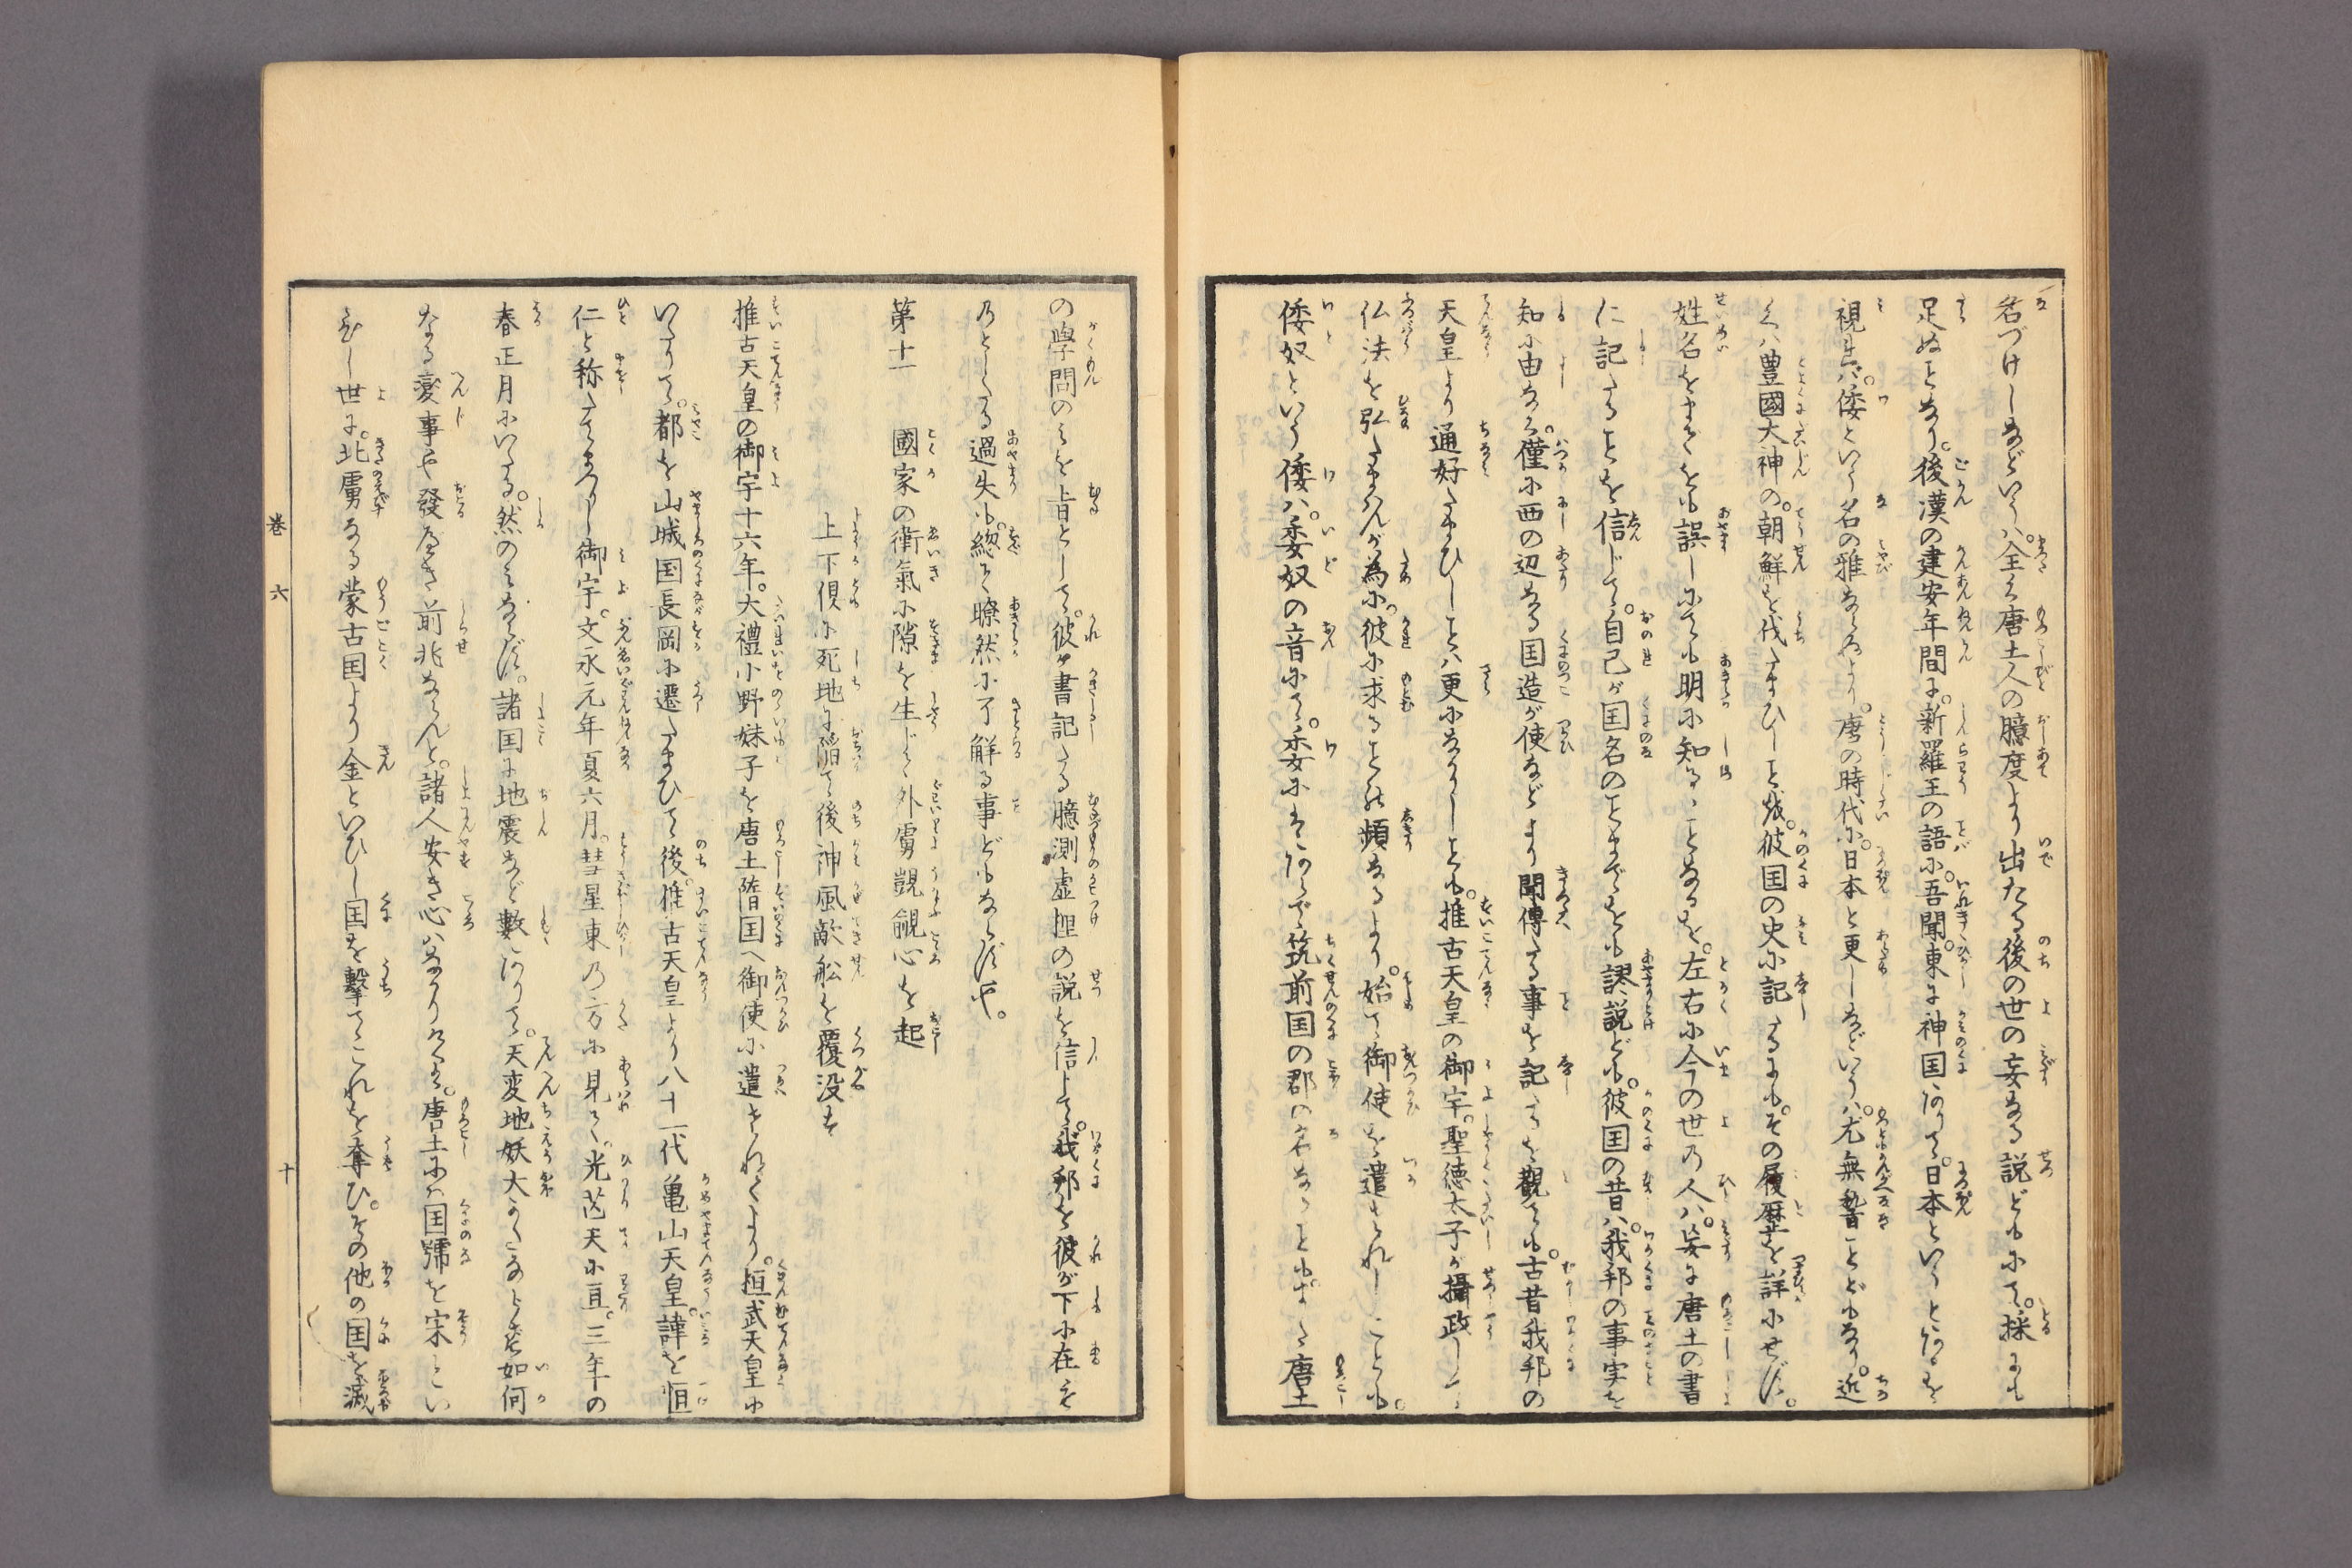 名づけしなどいふハ。全く唐土人の臆度より出たる後の世の妄なる説どもにて。採にも
足ぬことなり。後漢の建安年間に。新羅王の語に。吾聞。東に神国ありて。日本といふとあるを
視れバ。倭といふ名の雅ならぬより。唐の時代に。日本と更しなどいふハ。尤無稽ことどもなり。近
くハ豊國大神の。朝鮮を伐たまひしことは。彼国の史に記したるにも。その履歴を詳にせず。
姓名をまでをも誤しにても明に知るゝことなるを。左右に今の世の人ハ。妄に唐土の書
に記したることを信じて。自己が国名のことまでをも謬説ども。彼国の昔ハ。我邦の事実を
知に由なく。僅に西の辺なる国造が使などより聞傳たる事を記したるを観ても。古昔我邦の
天皇より通好たまひしことハ更になかりしことも。推古天皇の御宇。聖徳太子が攝政して
仏法を弘たまハんが為に。彼に求ることの頻なるより。始て御使を遣されしことも。
倭奴といふ倭ハ。委奴の音にて。委にはあらで筑前国の郡の名なることも。また唐土
の學問のみを旨として。彼が書記たる臆測虚捏の説を信じて。我邦を彼が下に在もの
乃としたる過失も。總て瞭然に了解る事どもならずや。
第十一　國家の衛氣に隙を生じて外虜覬覦心を起
上下倶に死地に陥て後神風敵舩を覆没す
推古天皇の御宇十六年。大禮小野妹子を唐土隋国へ御使に遣されしより。桓武天皇に
いたりて。都を山城国長岡に遷たまひて後。推古天皇より八十一代亀山天皇。諱を恒
仁と称たてまつりし御宇。文永元年夏六月。彗星東の方に見て。光芒天に亘。三年の
春正月にいたる。然のみならず。諸国に地震など數ありて。天変地妖大かたならず如何
なる変事や發るべき前兆ならんと。諸人安き心ハなかりける。唐土にハ国號を宋とい
ひし世に。北虜なる蒙古国より金といひし国を撃てこれを奪ひ。その他の国を滅
巻六　十